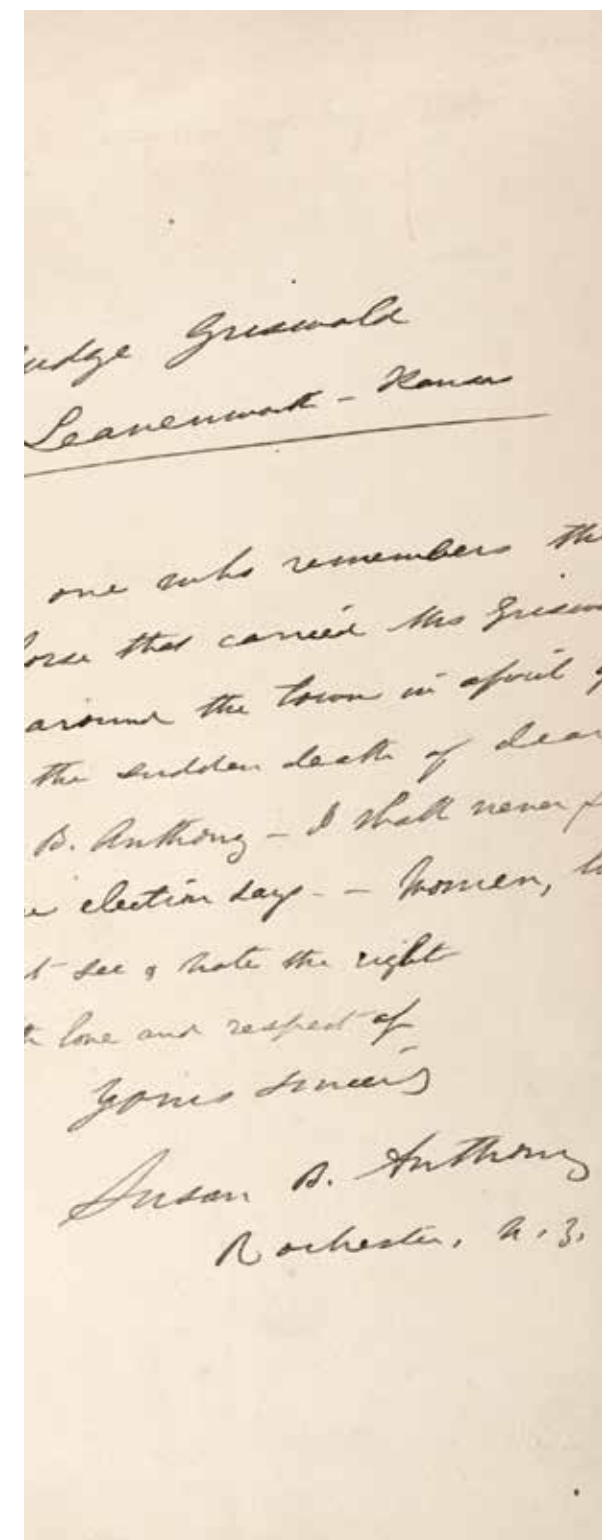 udge Griswold
Leavenworth - Kansas
one who remembers th
orse that carried Mrs Grisw
around the town in april
the sudden death of dear
B. Anthony - I shall never f
election days - Women,
t see & vote the right
love and respect of
Yours sincerely
Susan B. Anthony
Rochester, N.Y.